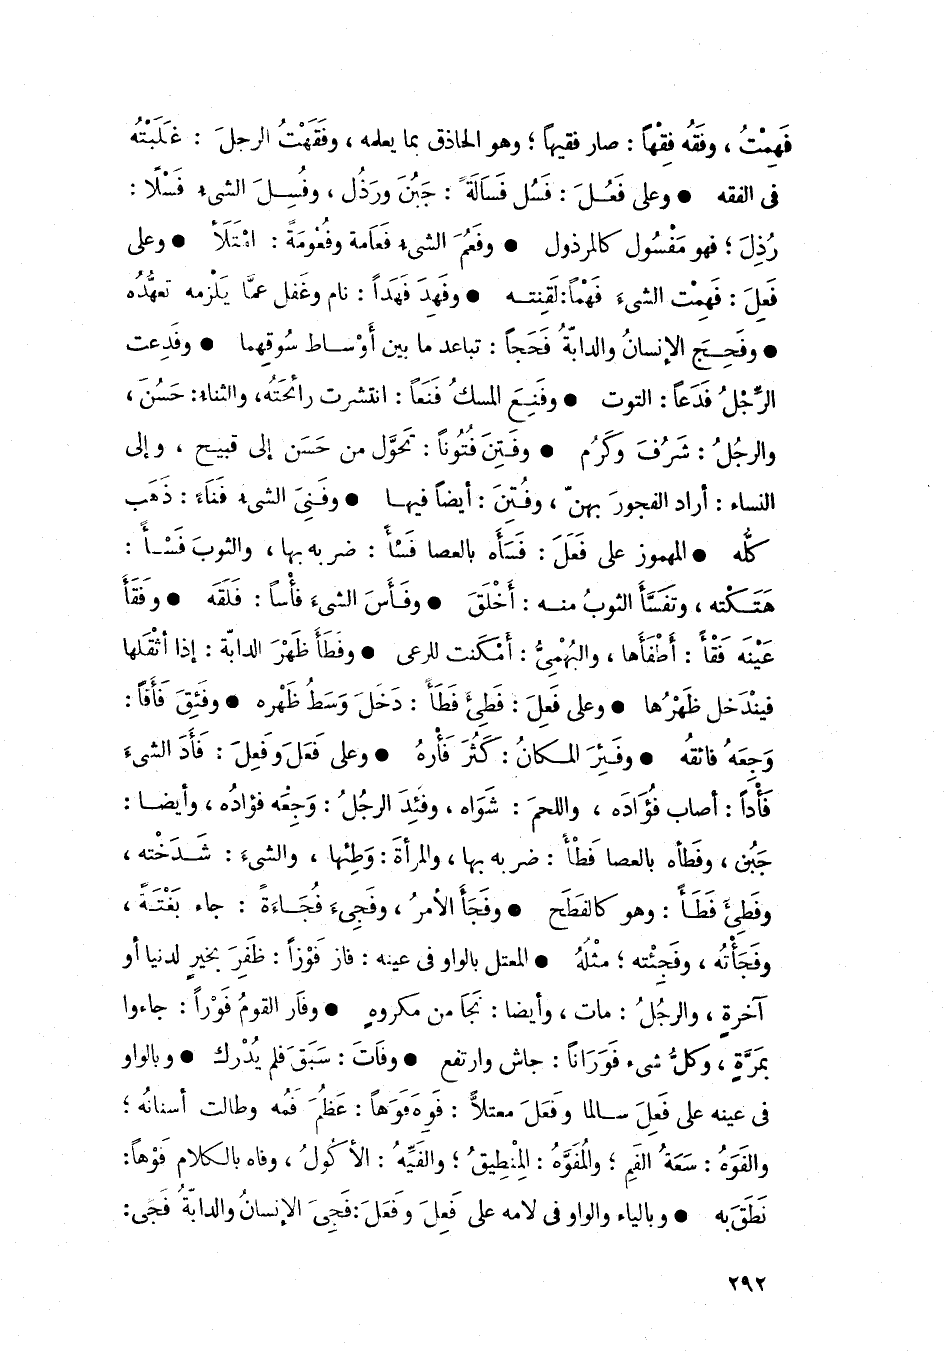 فَهِمْتُ ، وفَقُه فِقْهاً : صار فقيهاً ؛ وهو الحاذق بما يعلمه ، وفَقَهْتُ الرجلَ : غَلَبْتُه
فى الفقه ● وعلى فَعُـلَ : فَسُل فَسَالَةً : جَبُنَ ورَذُل ، وفُسِـلَ الشىء فَسْلًا :
رُذِلَ ؛ فهو مَفْسُول كالمرذول ● وفَعُمَ الشىء فَعَامة وفُعُومَةً : امْتَلَأَ ● وعلى
فَعِلَ : فَهِمْت الشىءَ فَهْماً: لَقِنتـه ● وفَهِدَ فَهَداً : نام وغَفل عمَّا يَلْزمه تعهُّدُه
● وفَحِـجَ الإنسانُ والدابّةُ فَحَجاً : تباعد ما بين أَوْسـاط سُوقِهما ● وفَدِعت
الرِّجْلُ فَدَعاً : التوت ● وفَنِـعَ المسكُ فَنَعاً : انتشرت رائحَتُه، والثناء: حَسُنَ ،
والرجُلُ : شَرُفَ وَكَرُم ● وفَـتِنَ فُتُوناً : تَحَوَّل من حَسَن إلى قبيح ، وإلى
النساء : أراد الفجورَ بهنّ ، وفُـتِنَ : أيضاً فيهـا ● وفَـنِىَ الشىء فَنَاءً : ذَهَب
كلُّه ● المهموز على فَعَلَ : فَسَأَه بالعصا فَسْأً : ضربه بها ، والثوبَ فَسْـأً :
هَتَـكْته ، وتَفَسَّأَ الثوبُ منـه : أَخْلَقَ ● وفَـأَسَ الشىءَ فَأْساً : فَلَقَه ● وفَقَأَ
عَيْنَه فَقْأً : أَطْفَأَها ، والبُهْمىُ : أَمْكَنت للرعى ● وفَطَأَ ظَهْرَ الدابّة : إذا أثْقَلها
فيَنْدَخل ظَهْرُها ● وعلى فَعِلَ : فَطِئَ فَطَأً : دَخَلَ وَسَطُ ظَهْره ● وفَئِقَ فَأَقاً :
وَجِعَهُ فائقُه ● وفَـئِرَ المـكانُ : كَثُرَ فَأْرهُ ● وعلى فَعَلَ وفَعِلَ : فَأَدَ الشىءَ
فَأْداً : أصاب فُؤَادَه ، واللحمَ : شَوَاه ، وفَئِدَ الرجُلُ : وَجِعْه فؤادُه ، وأيضـا :
جَبُن ، وفَطأه بالعصا فَطْأً : ضربه بها ، والمرأةَ : وَطِئها ، والشىءَ : شَـدَخْته ،
وفَطِئَ فَطَـأً : وهو كالفَطَح ● وفَجَأَ الأمرُ ، وفَجِىءَ فُجَـاءَةً : جاء بَغْتَـةً ،
وفَجَأْتُه ، وفَجِئْته ؛ مثْلُهُ ● المعتل بالواو فى عينه : فاز فَوْزاً : ظَفِرَ بخيرٍ لدنيا أو
آخرةٍ ، والرجُلُ : مات ، وأيضا : نَجَا من مكروهٍ ● وفَار القومُ فَوْراً : جاءوا
بمَرَّةٍ ، وكلُّ شىء فَوَرَاناً : جاش وارتفع ● وفَاتَ : سَبَقَ فلم يُدْرك ● وبالواو
فى عينه على فَعِلَ سـالما وفَعَلَ معتلاًّ : فَوِهَ فَوَهاً : عَظُمَ فَمُه وطالت أسنانُه ؛
والفَوَهُ : سَعَةُ الفَمِ ؛ والمُفَوَّهُ : المِنْطِيقُ ؛ والفَيِّهُ : الأكُولُ ، وفاه بالكلام فَوْهاً:
نَطَقَ به ● وبالياء والواو فى لامه على فَعِلَ وفَعَلَ : فَجِىَ الإنسانُ والدابّةُ فَجًى :
٢٩٢